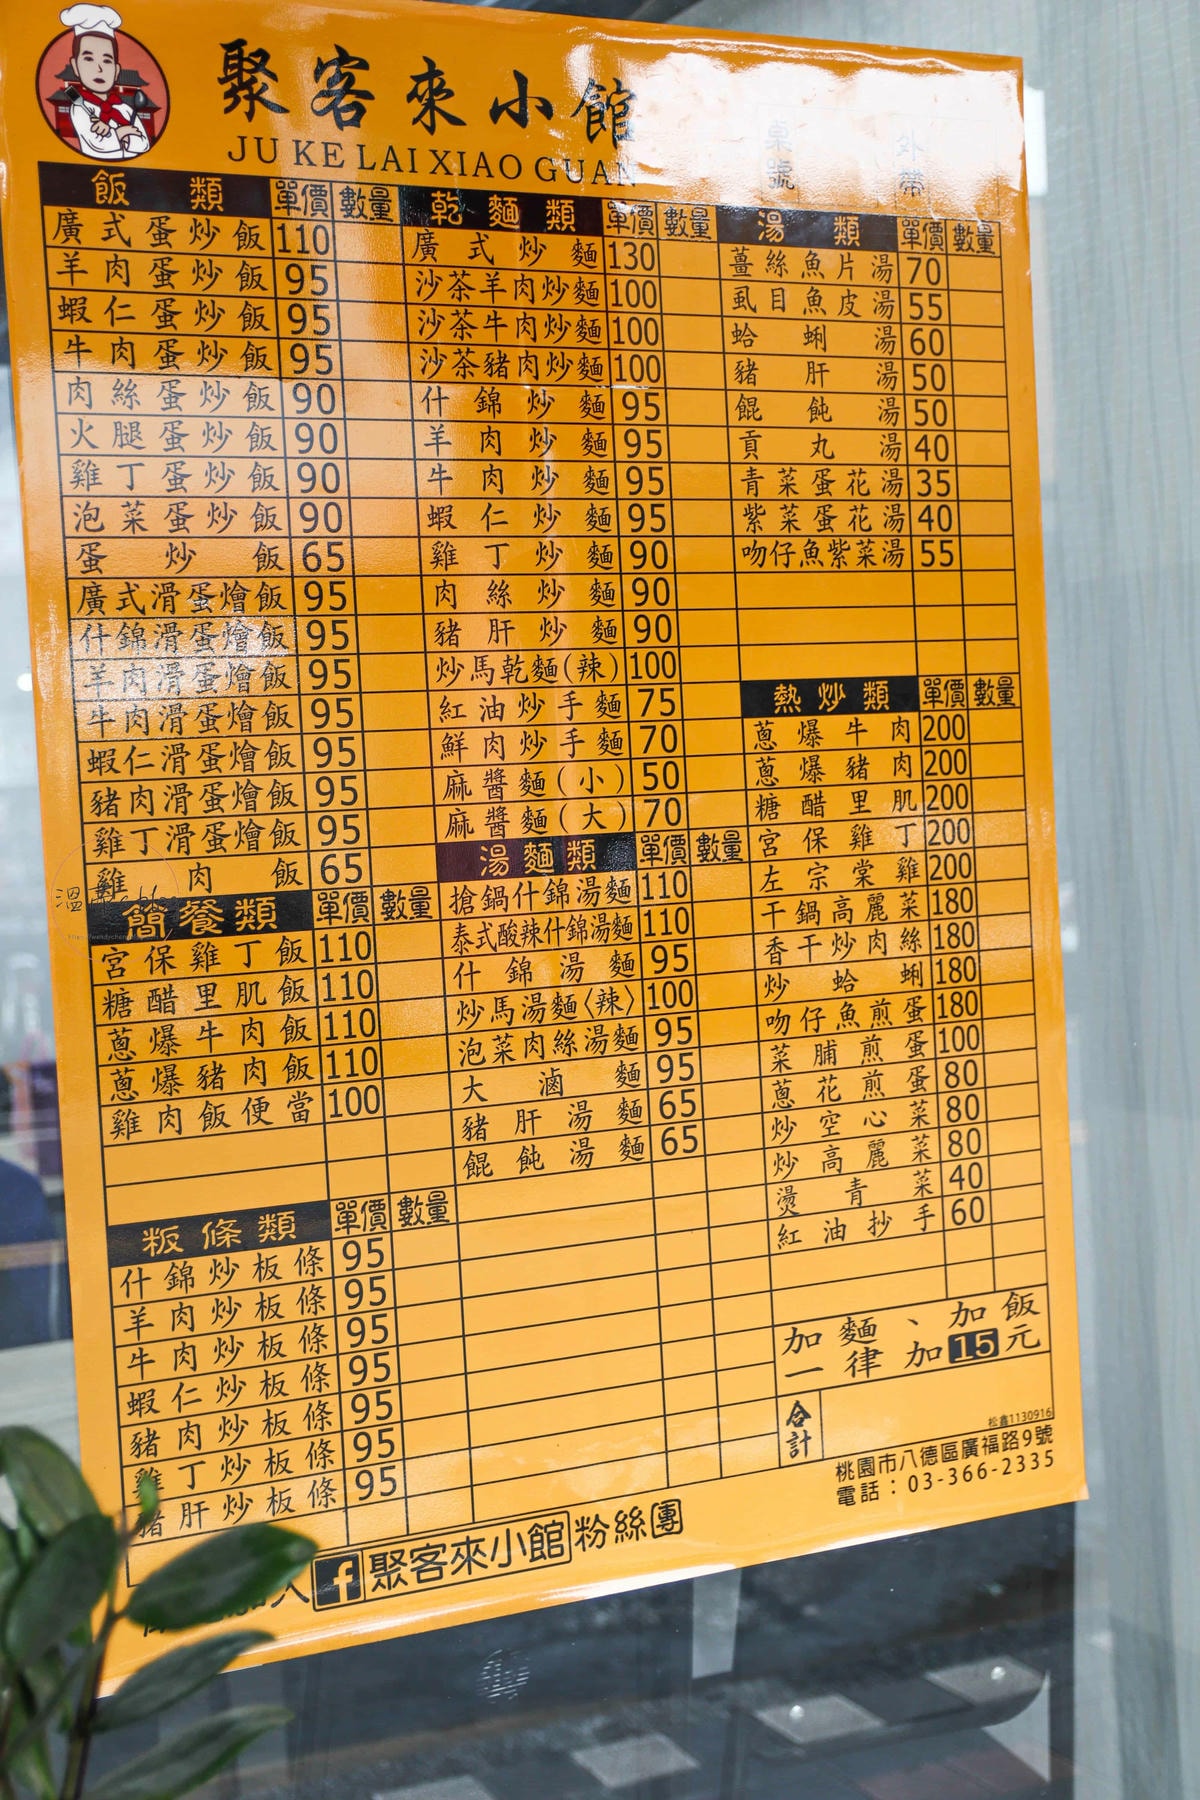 聚客來小館
JU KE LAI XIAO GUAN
桌號
外帶
飯類 單價 數量
廣式蛋炒飯 110
羊肉蛋炒飯 95
蝦仁蛋炒飯 95
牛肉蛋炒飯 95
肉絲蛋炒飯 90
火腿蛋炒飯 90
雞丁蛋炒飯 90
泡菜蛋炒飯 90
蛋炒飯 65
廣式滑蛋燴飯 95
什錦滑蛋燴飯 95
羊肉滑蛋燴飯 95
牛肉滑蛋燴飯 95
蝦仁滑蛋燴飯 95
豬肉滑蛋燴飯 95
雞丁滑蛋燴飯 95
雞肉飯 65
簡餐類 單價 數量
宮保雞丁飯 110
糖醋里肌飯 110
蔥爆牛肉飯 110
蔥爆豬肉飯 110
雞肉飯便當 100
粄條類 單價 數量
什錦炒板條 95
羊肉炒板條 95
牛肉炒板條 95
蝦仁炒板條 95
豬肉炒板條 95
雞丁炒板條 95
豬肝炒板條 95
乾麵類 單價 數量
廣式炒麵 130
沙茶羊肉炒麵 100
沙茶牛肉炒麵 100
沙茶豬肉炒麵 100
什錦炒麵 95
羊肉炒麵 95
牛肉炒麵 95
蝦仁炒麵 95
雞丁炒麵 90
肉絲炒麵 90
豬肝炒麵 90
炒馬乾麵(辣) 100
紅油炒手麵 75
鮮肉炒手麵 70
麻醬麵(小) 50
麻醬麵(大) 70
湯麵類 單價 數量
搶鍋什錦湯麵 110
泰式酸辣什錦湯麵 110
什錦湯麵 95
炒馬湯麵〈辣〉 100
泡菜肉絲湯麵 95
大滷麵 95
豬肝湯麵 65
餛飩湯麵 65
湯類 單價 數量
薑絲魚片湯 70
虱目魚皮湯 55
蛤蜊湯 60
豬肝湯 50
餛飩湯 50
貢丸湯 40
青菜蛋花湯 35
紫菜蛋花湯 40
吻仔魚紫菜湯 55
熱炒類 單價 數量
蔥爆牛肉 200
蔥爆豬肉 200
糖醋里肌 200
宮保雞丁 200
左宗棠雞 200
干鍋高麗菜 180
香干炒肉絲 180
炒蛤蜊 180
吻仔魚煎蛋 180
菜脯煎蛋 100
蔥花煎蛋 80
炒空心菜 80
炒高麗菜 80
燙青菜 40
紅油抄手 60
加麵、加飯
一律加15元
合計
松鑫1130916
桃園市八德區廣福路9號
電話：03-366-2335
入 f 聚客來小館 粉絲團